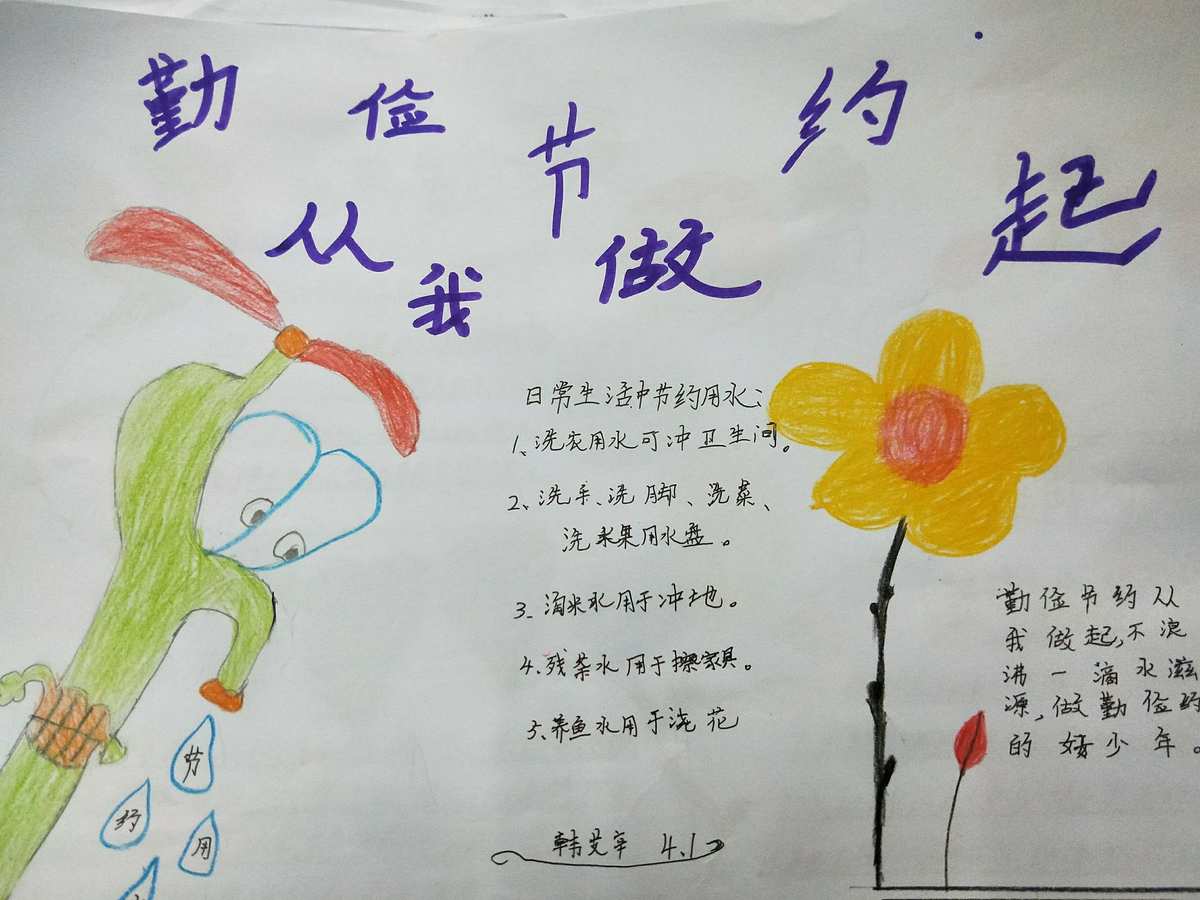 勤俭节约
从我做起
日常生活中节约用水:
1、洗衣用水可冲卫生间。
2、洗手、洗脚、洗菜、
洗水果用水盘。
3、淘米水用于冲地。
4、残茶水用于擦家具。
5、养鱼水用于浇花
韩艾 4.1
勤俭节约从
我做起,不浪
沸一滴水滋
源,做勤俭约
的好少年。
节
约
用